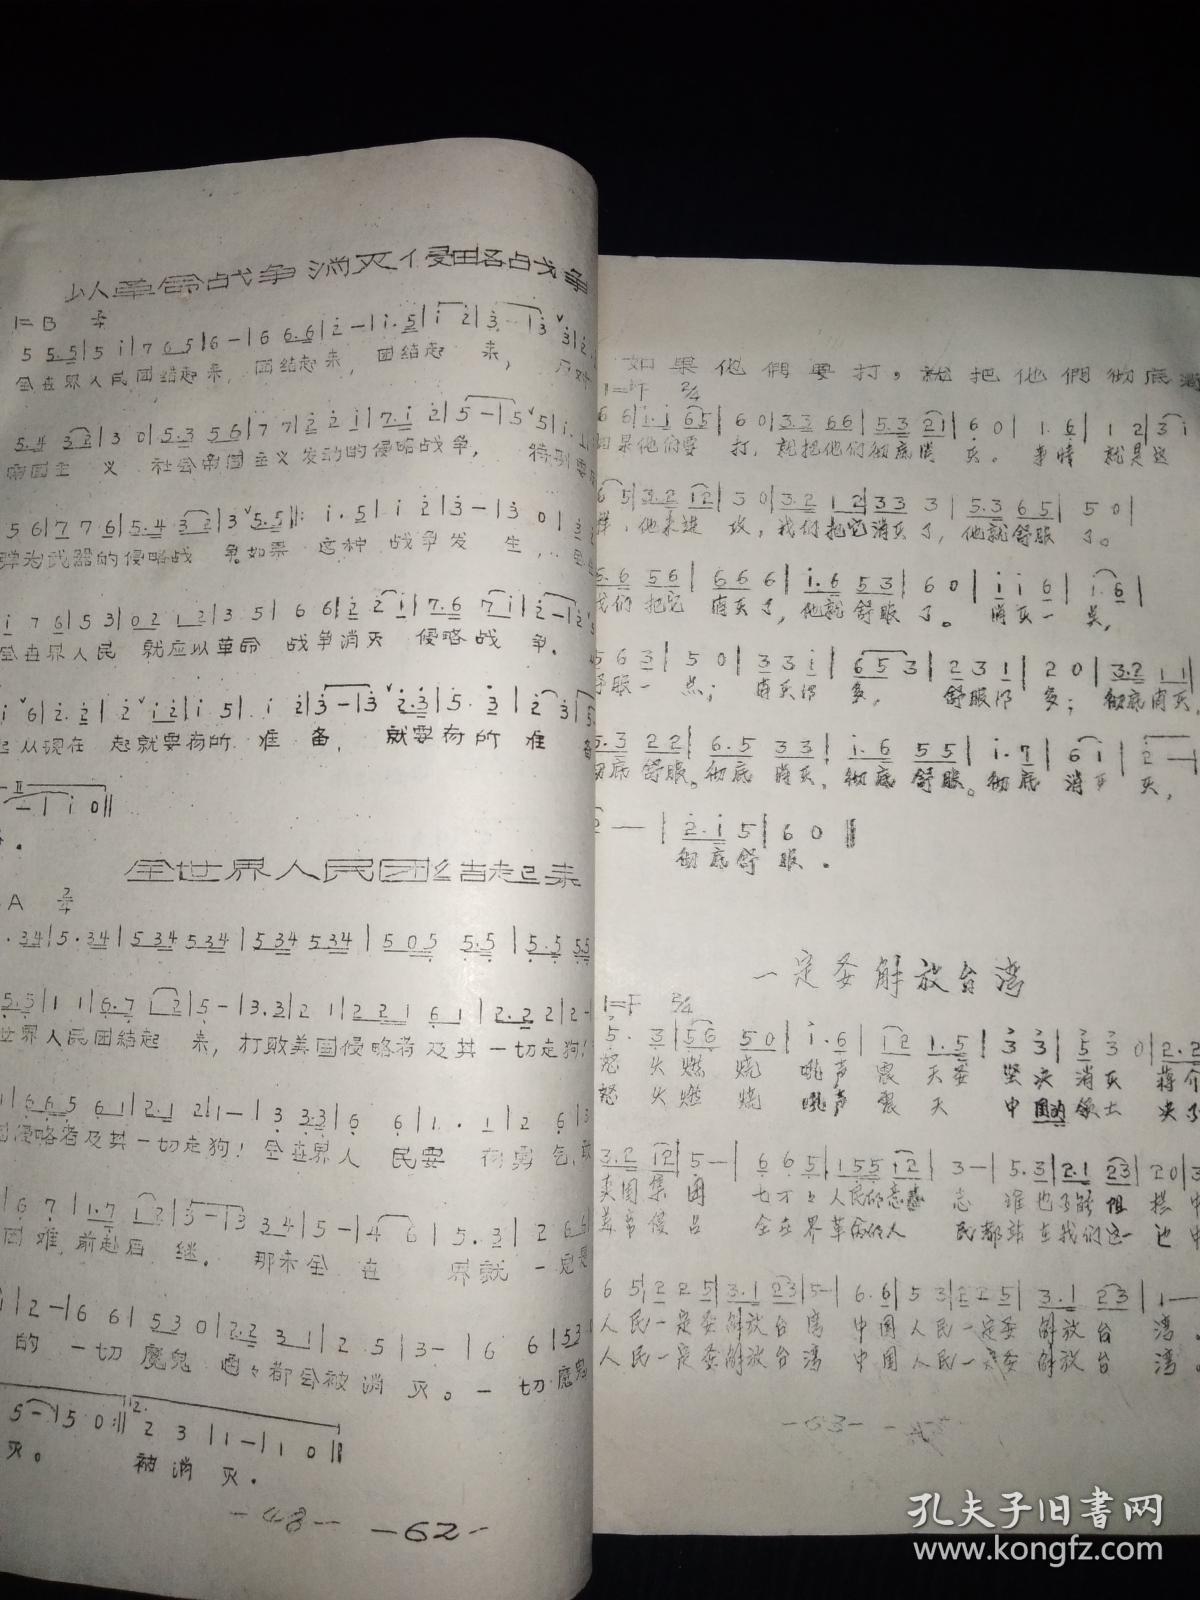 以革命战争消灭侵略战争
1=B 2/4
5 5.5|5 i|7 6 5|6 —|6 6.6|2 —|i.5|i 2|3 —|3 3|2.
全世界人民团结起来，团结起来，团结起来，反对
5.4 3 2|3 0|5.3 5 6|7 7|2 2 i|7.i 2|5 —|5 5|i.
帝国主义 社会帝国主义发动的侵略战争，特别要
5 6|7 7 6|5.4 3 2|3 5.5|: i.5|i 2|3 —|3 0|
弹为武器的侵略战争。如果这种战争发生，
i 7 6|5 3|0 2 1 2|3 5|6 6|2 2 i|7.6 7 i|2 —|2
全世界人民 就应以革命 战争消灭 侵略战争。
i 6|2.2|2 i 2|i 5|i 2|3 —|3 2.3|5.3|2 3|5
从现在起就要有所准备，就要有所准备
— | i 0||
全世界人民团结起来
A 2/4
.34|5.34|5 34 5 34|5 34 5 34|5 0 5 5.5|5.5 5.5
5.5|1 1|6.7 1 2|5 —|3.3|2 1|2 2 1 6 1|2.2 2|2 —
世界人民团结起来，打败美国侵略者及其一切走狗！
1|6 6 5 6 1|2.1 2|1 —|3 3.3|6 6|1.1|2 6|3
侵略者及其一切走狗！全世界人民要有勇气，敢
|6 7|1.7 1 2|3 —|3 3 4|5 —|4 6|5.3|2 6 6
困难，前赴后继。那末全世界就一定是
i|2 —|6 6|5 3 0|2.2 3 1|2 5|3 —|6 6|5 3 0
的一切魔鬼通々都会被消灭。一切魔鬼
5 —|5 0:||2. 2 3|1 —|1 0||
灭。 被消灭。
-48- -62-
如果他们要打，就把他们彻底消
1=F 2/4
6 6|i.i 6 5|6 0|3.3 6 6|5.3 2 1|6 0|1.6|1 2|3 i
如果他们要打，就把他们彻底消灭。事情就是这
6 5|3.2 1 2|3 0|3.2 1 2|3 3 3|5.3 6 5|5 0|
样，他来进攻，我们把它消灭了，他就舒服了。
6.6 5 6|6 6 6|i.6 5 3|6 0|i i 6|i.6|
我们把它消灭了，他就舒服了。消灭一点，
5 6 3|5 0|3 3 i|6 5 3|2 3 1|2 0|3.2 1 1|
舒服一点；消灭得多，舒服得多；彻底消灭，
5.3 2 2|6.5 3 3|i.6 5 5|i.7|6 i|2 —|
彻底舒服。彻底消灭，彻底舒服。彻底消灭，
2 —|2.i 5|6 0||
彻底舒服。
一定要解放台湾
1=F 2/4
5.3|5 6 5 0|i.6|i 2 1.5|3 3|5 3 0|2.2
怒火燃烧吼声震天要坚决消灭蒋介
怒火燃烧吼声震天 中国的领土决不
3.2 1 2|5 —|6 6 5|1 5 5 1 2|3 —|5.3|2.1 2 3|2 0|3
美国集团 七亿人民的意志 谁也不能阻挡 中
美帝侵占 全世界革命的人民都站在我们这一边 中
6 5|2 2 5|3.1 2 3|5 —|6.6|5 3|2 2 5|3.1 2 3|1 —
人民一定要解放台湾 中国人民一定要解放台湾。
人民一定要解放台湾 中国人民一定要解放台湾。
-63-
孔夫子旧书网
www.kongfz.com